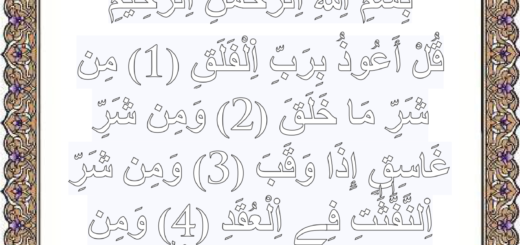 بِسْمِ اِللَّهِ اِلرَّحْمَٰنِ اِلرَّحِيمِ
قُلْ أَعُوذُ بِرَبِّ اِلْفَلَقِ (1) مِن
شَرِّ مَا خَلَقَ (2) وَمِن شَرِّ
غَاسِقٍ إِذَا وَقَبَ (3) وَمِن شَرِّ
اِلنَّفَّٰثَٰتِ فِے اِلْعُقَدِ (4) وَمِن